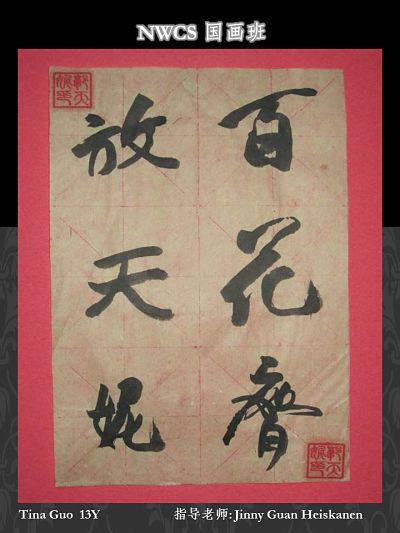 NWCS 国画班
百花齊
放天妮
Tina Guo 13Y
指导老师: Jinny Guan Heiskanen